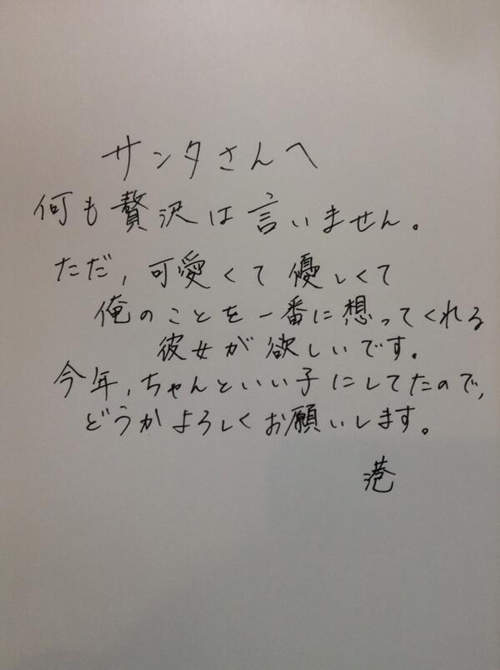 サンタさんへ
何も贅沢は言いません。
ただ、可愛くて優しくて
俺のことを一番に想ってくれる
彼女が欲しいです。
今年、ちゃんといい子にしてたので、
どうかよろしくお願いします。
港